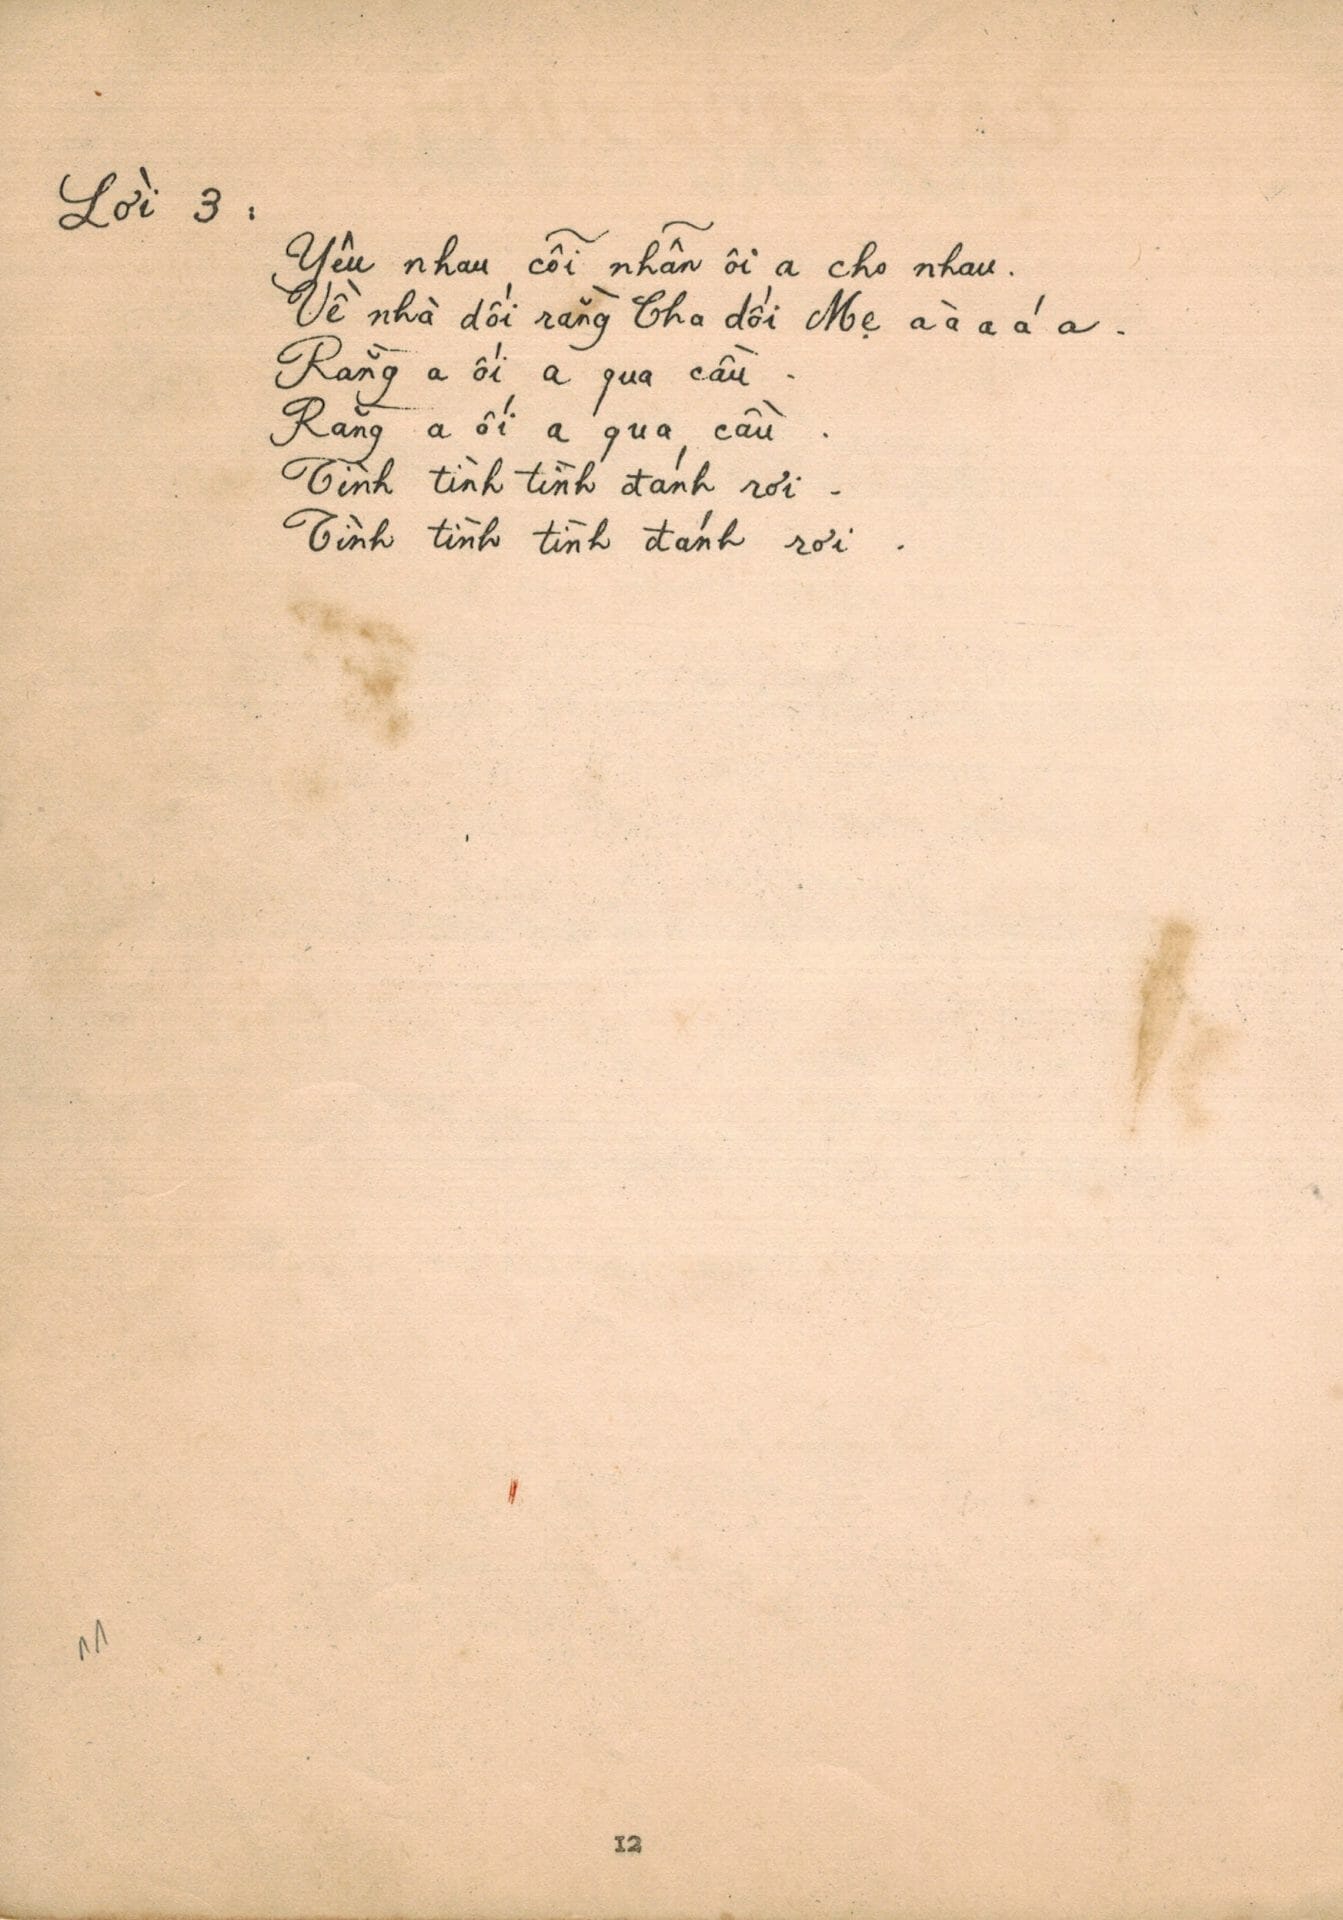 Lời 3 :
Yêu nhau cỗi nhẫn ôi a cho nhau.
Về nhà dối rằng Cha dối Mẹ a à a á a.
Rằng a ối a qua cầu.
Rằng a ối a qua cầu.
Tình tình tình đánh rơi.
Tình tình tình đánh rơi.
12